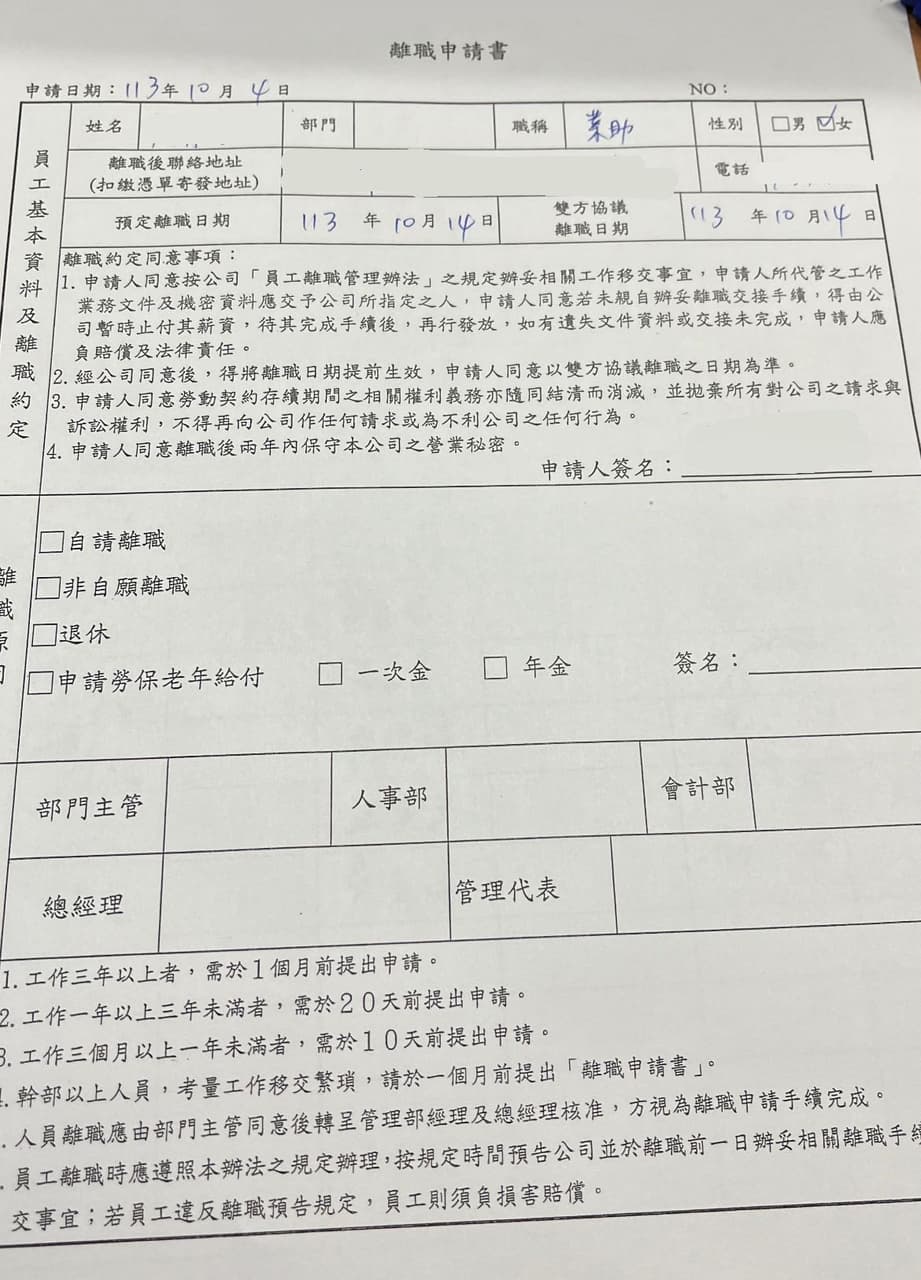 離職申請書
申請日期：113年10月4日 NO：
姓名 部門 職稱 業助 性別 □男 ☑女
離職後聯絡地址
(扣繳憑單寄發地址) 電話
預定離職日期 113 年 10月14日 雙方協議離職日期 113 年10月14日
員工基本資料及離職約定
離職約定同意事項：
1. 申請人同意按公司「員工離職管理辦法」之規定辦妥相關工作移交事宜，申請人所代管之工作
業務文件及機密資料應交予公司所指定之人，申請人同意若未親自辦妥離職交接手續，得由公
司暫時止付其薪資，待其完成手續後，再行發放，如有遺失文件資料或交接未完成，申請人應
負賠償及法律責任。
2. 經公司同意後，得將離職日期提前生效，申請人同意以雙方協議離職之日期為準。
3. 申請人同意勞動契約存續期間之相關權利義務亦隨同結清而消滅，並拋棄所有對公司之請求與
訴訟權利，不得再向公司作任何請求或為不利公司之任何行為。
4. 申請人同意離職後兩年內保守本公司之營業秘密。
申請人簽名：
離職原
□自請離職
□非自願離職
□退休
□申請勞保老年給付 □ 一次金 □ 年金 簽名：
部門主管 人事部 會計部
總經理 管理代表
1. 工作三年以上者，需於1個月前提出申請。
2. 工作一年以上三年未滿者，需於20天前提出申請。
3. 工作三個月以上一年未滿者，需於10天前提出申請。
. 幹部以上人員，考量工作移交繁瑣，請於一個月前提出「離職申請書」。
. 人員離職應由部門主管同意後轉呈管理部經理及總經理核准，方視為離職申請手續完成。
. 員工離職時應遵照本辦法之規定辦理，按規定時間預告公司並於離職前一日辦妥相關離職手續
交事宜；若員工違反離職預告規定，員工則須負損害賠償。